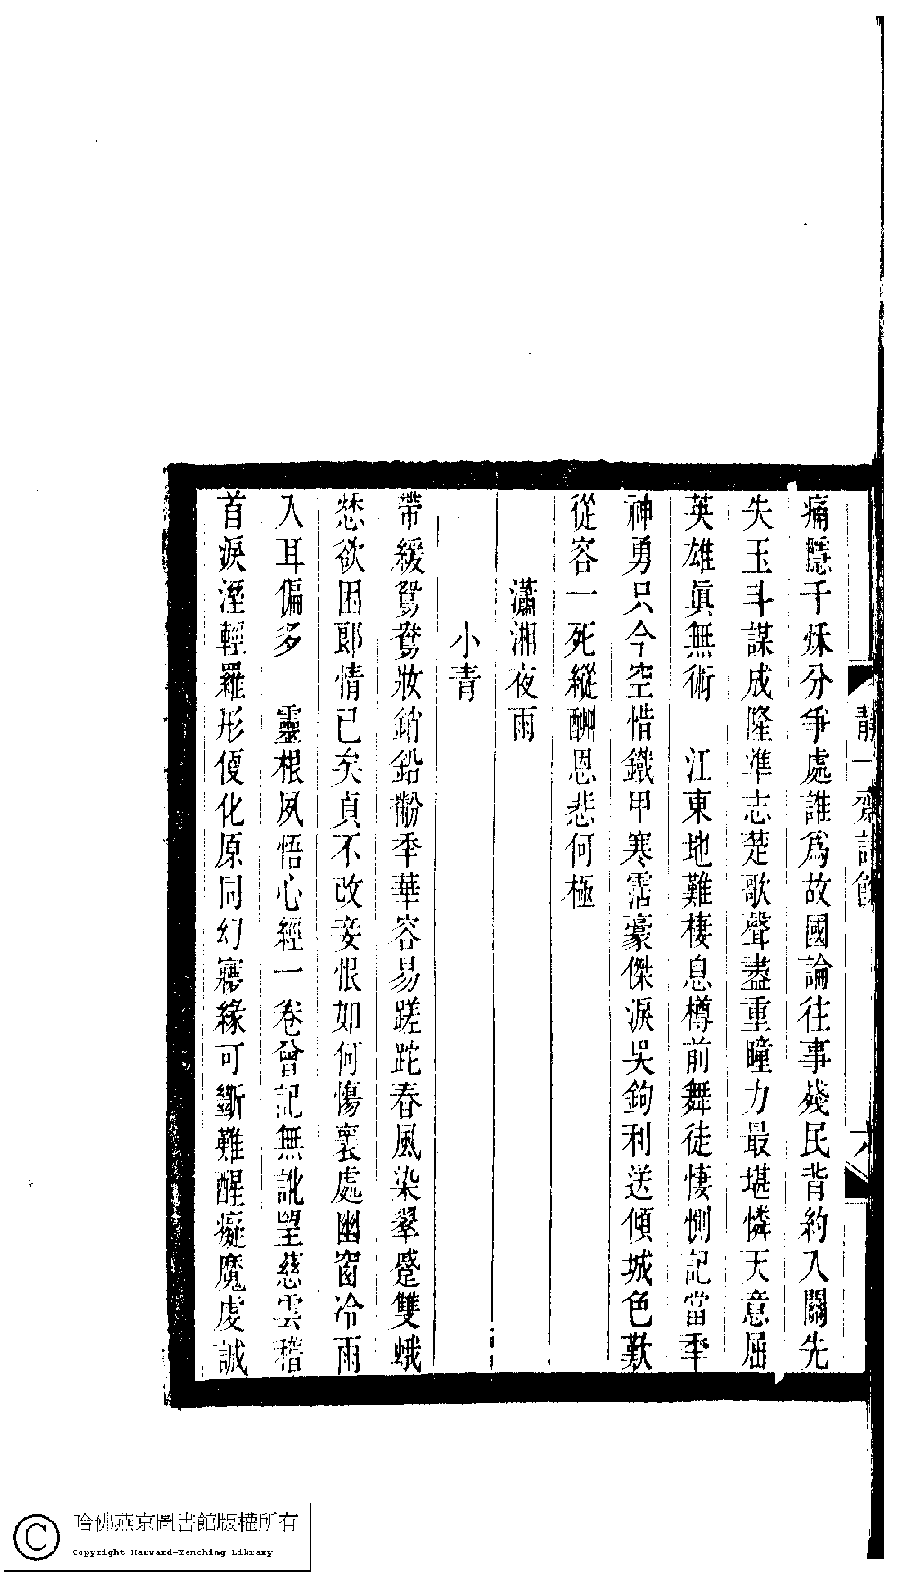 靜一齋詩餘
六
痛隱千秌分爭處誰爲故國論往事殘民背約入關先
失玉斗謀成隆準志楚歌聲盡重瞳力最堪憐天意屈
英雄眞無術　江東地難棲息樽前舞徒悽惻記當秊
神勇只今空惜鐵甲寒霑豪傑淚吳鉤利送傾城色歎
從容一死縱酬恩悲何極
瀟湘夜雨
小青
帶緩鴛鴦妝銷鉛黺秊華容易蹉跎春風染翠蹙雙蛾
愁欲困郞情已矣貞不改妾恨如何傷褱處幽窗冷雨
入耳偏多　靈根夙悟心經一卷曾記無訛望慈雲稽
首淚溼輕羅形便化原同幻寤緣可斷難醒癡魔虔誠
哈佛燕京圖書館版權所有
Copyright Harvard-Yenching Library